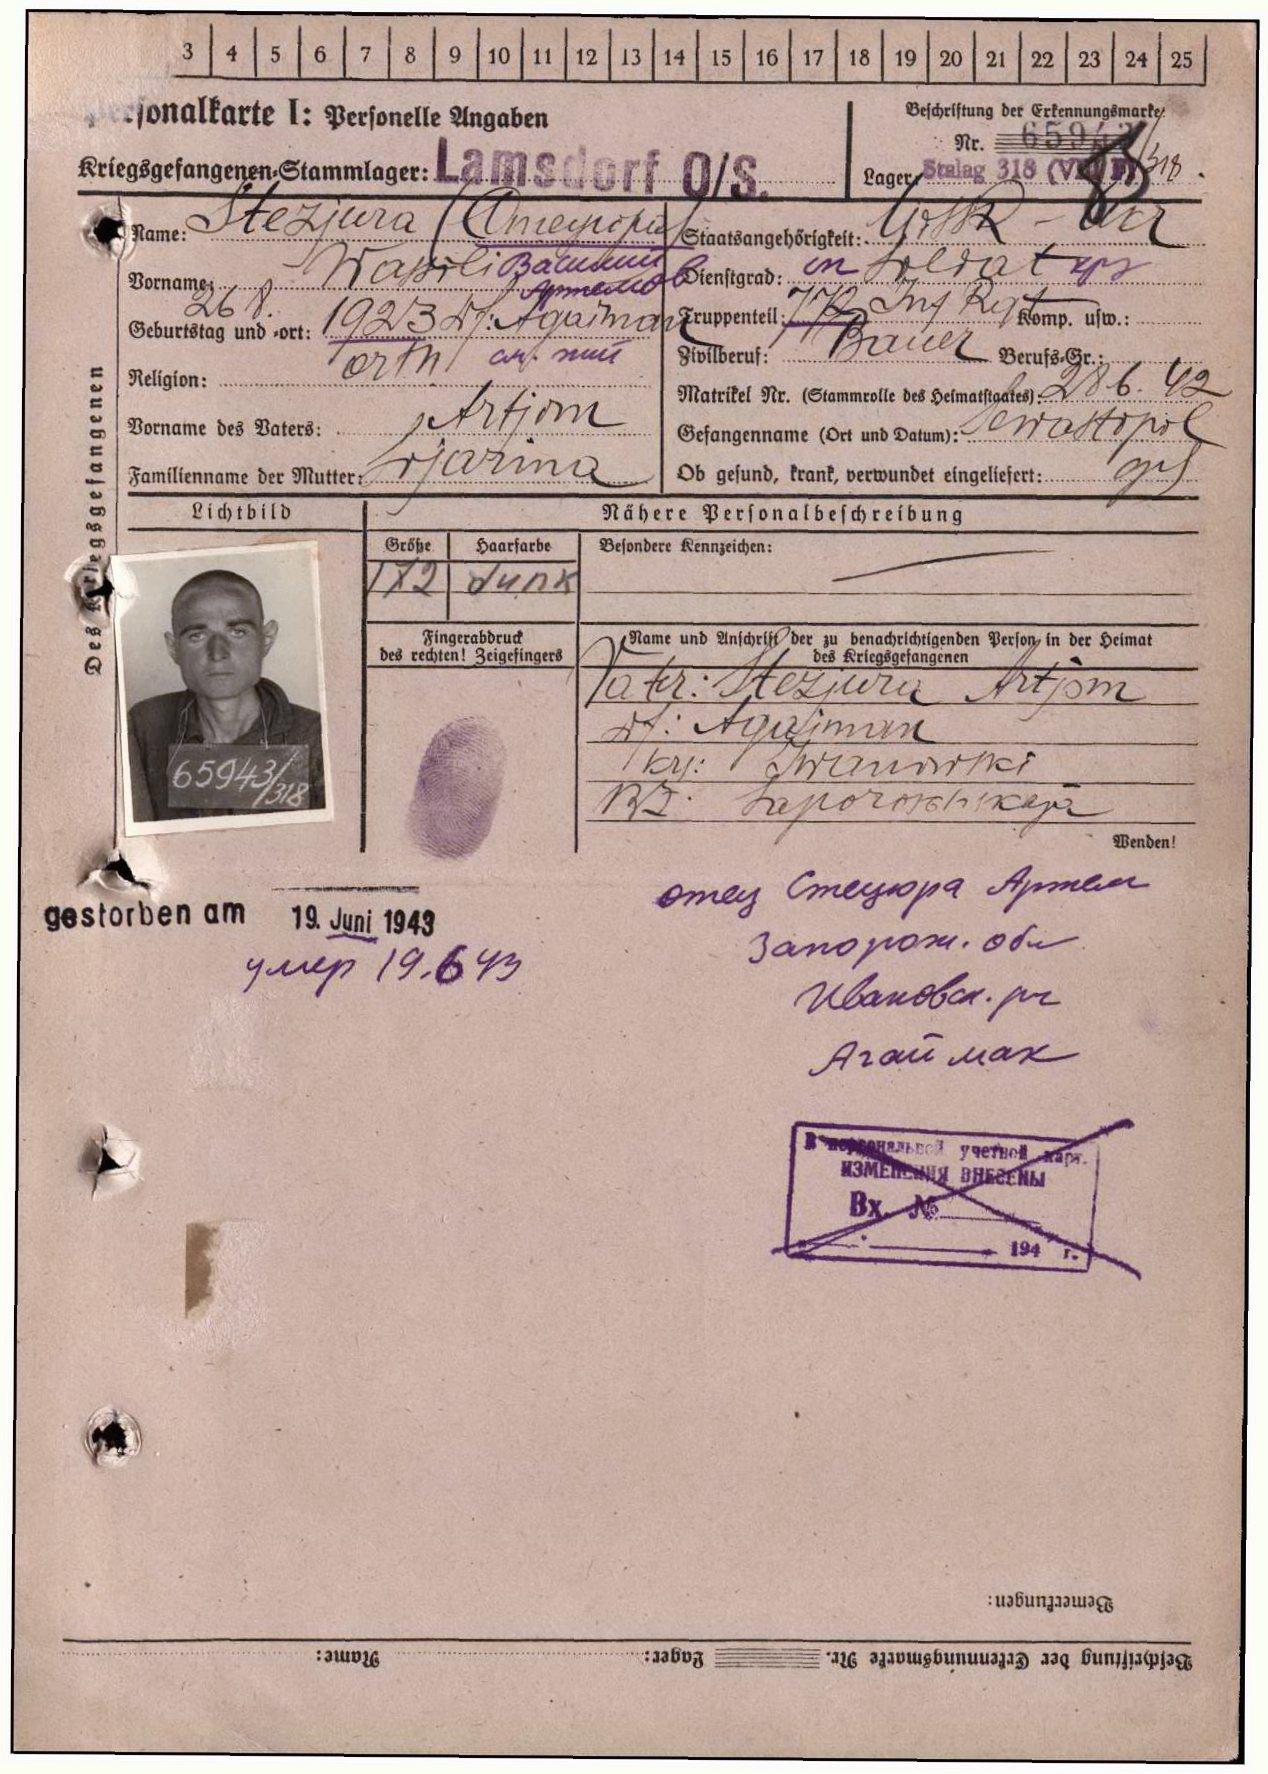 3 4 5 6 7 8 9 10 11 12 13 14 15 16 17 18 19 20 21 22 23 24 25
Personalkarte I: Personelle Angaben
Kriegsgefangenen-Stammlager: Lamsdorf O/S.
Beschriftung der Erkennungsmarke
Nr. 65943/318
Lager: Stalag 318 (VIII F)
Des Kriegsgefangenen
Name: Stezjura (Стецюра)
Vorname: Wassili Василий
Артемов
Geburtstag und -ort: 26.8. 1923 Df: Agaiman
Religion: orth
Vorname des Vaters: Artjom
Familienname der Mutter:
Staatsangehörigkeit: UdSSR - Ukr
Dienstgrad: Soldat
Truppenteil: 772 Inf Rgt Komp. usw.:
Zivilberuf: Bauer Berufs-Gr.:
Matrikel Nr. (Stammrolle des Heimatstaates): 28.6.42
Gefangenname (Ort und Datum): Sewastopol
Ob gesund, krank, verwundet eingeliefert: gs
Lichtbild
65943/318
Nähere Personalbeschreibung
Größe Haarfarbe Besondere Kennzeichen:
172 dunk
Fingerabdruck
des rechten! Zeigefingers
Name und Anschrift der zu benachrichtigenden Person in der Heimat
des Kriegsgefangenen
Vater: Stezjura Artjom
Df: Agaiman
Krs: Iwanowski
BZ: Saporoshskaja
Wenden!
gestorben am 19. Juni 1943
умер 19.6 43
отец Стецюра Артем
Запорож. обл
Ивановск. р-н
Агайман
В персональной учетной карт.
ИЗМЕНЕНИЯ ВНЕСЕНЫ
Вх. №
194 г.
Bemerkungen:
Beschriftung der Erkennungsmarke Nr. Lager: Name: